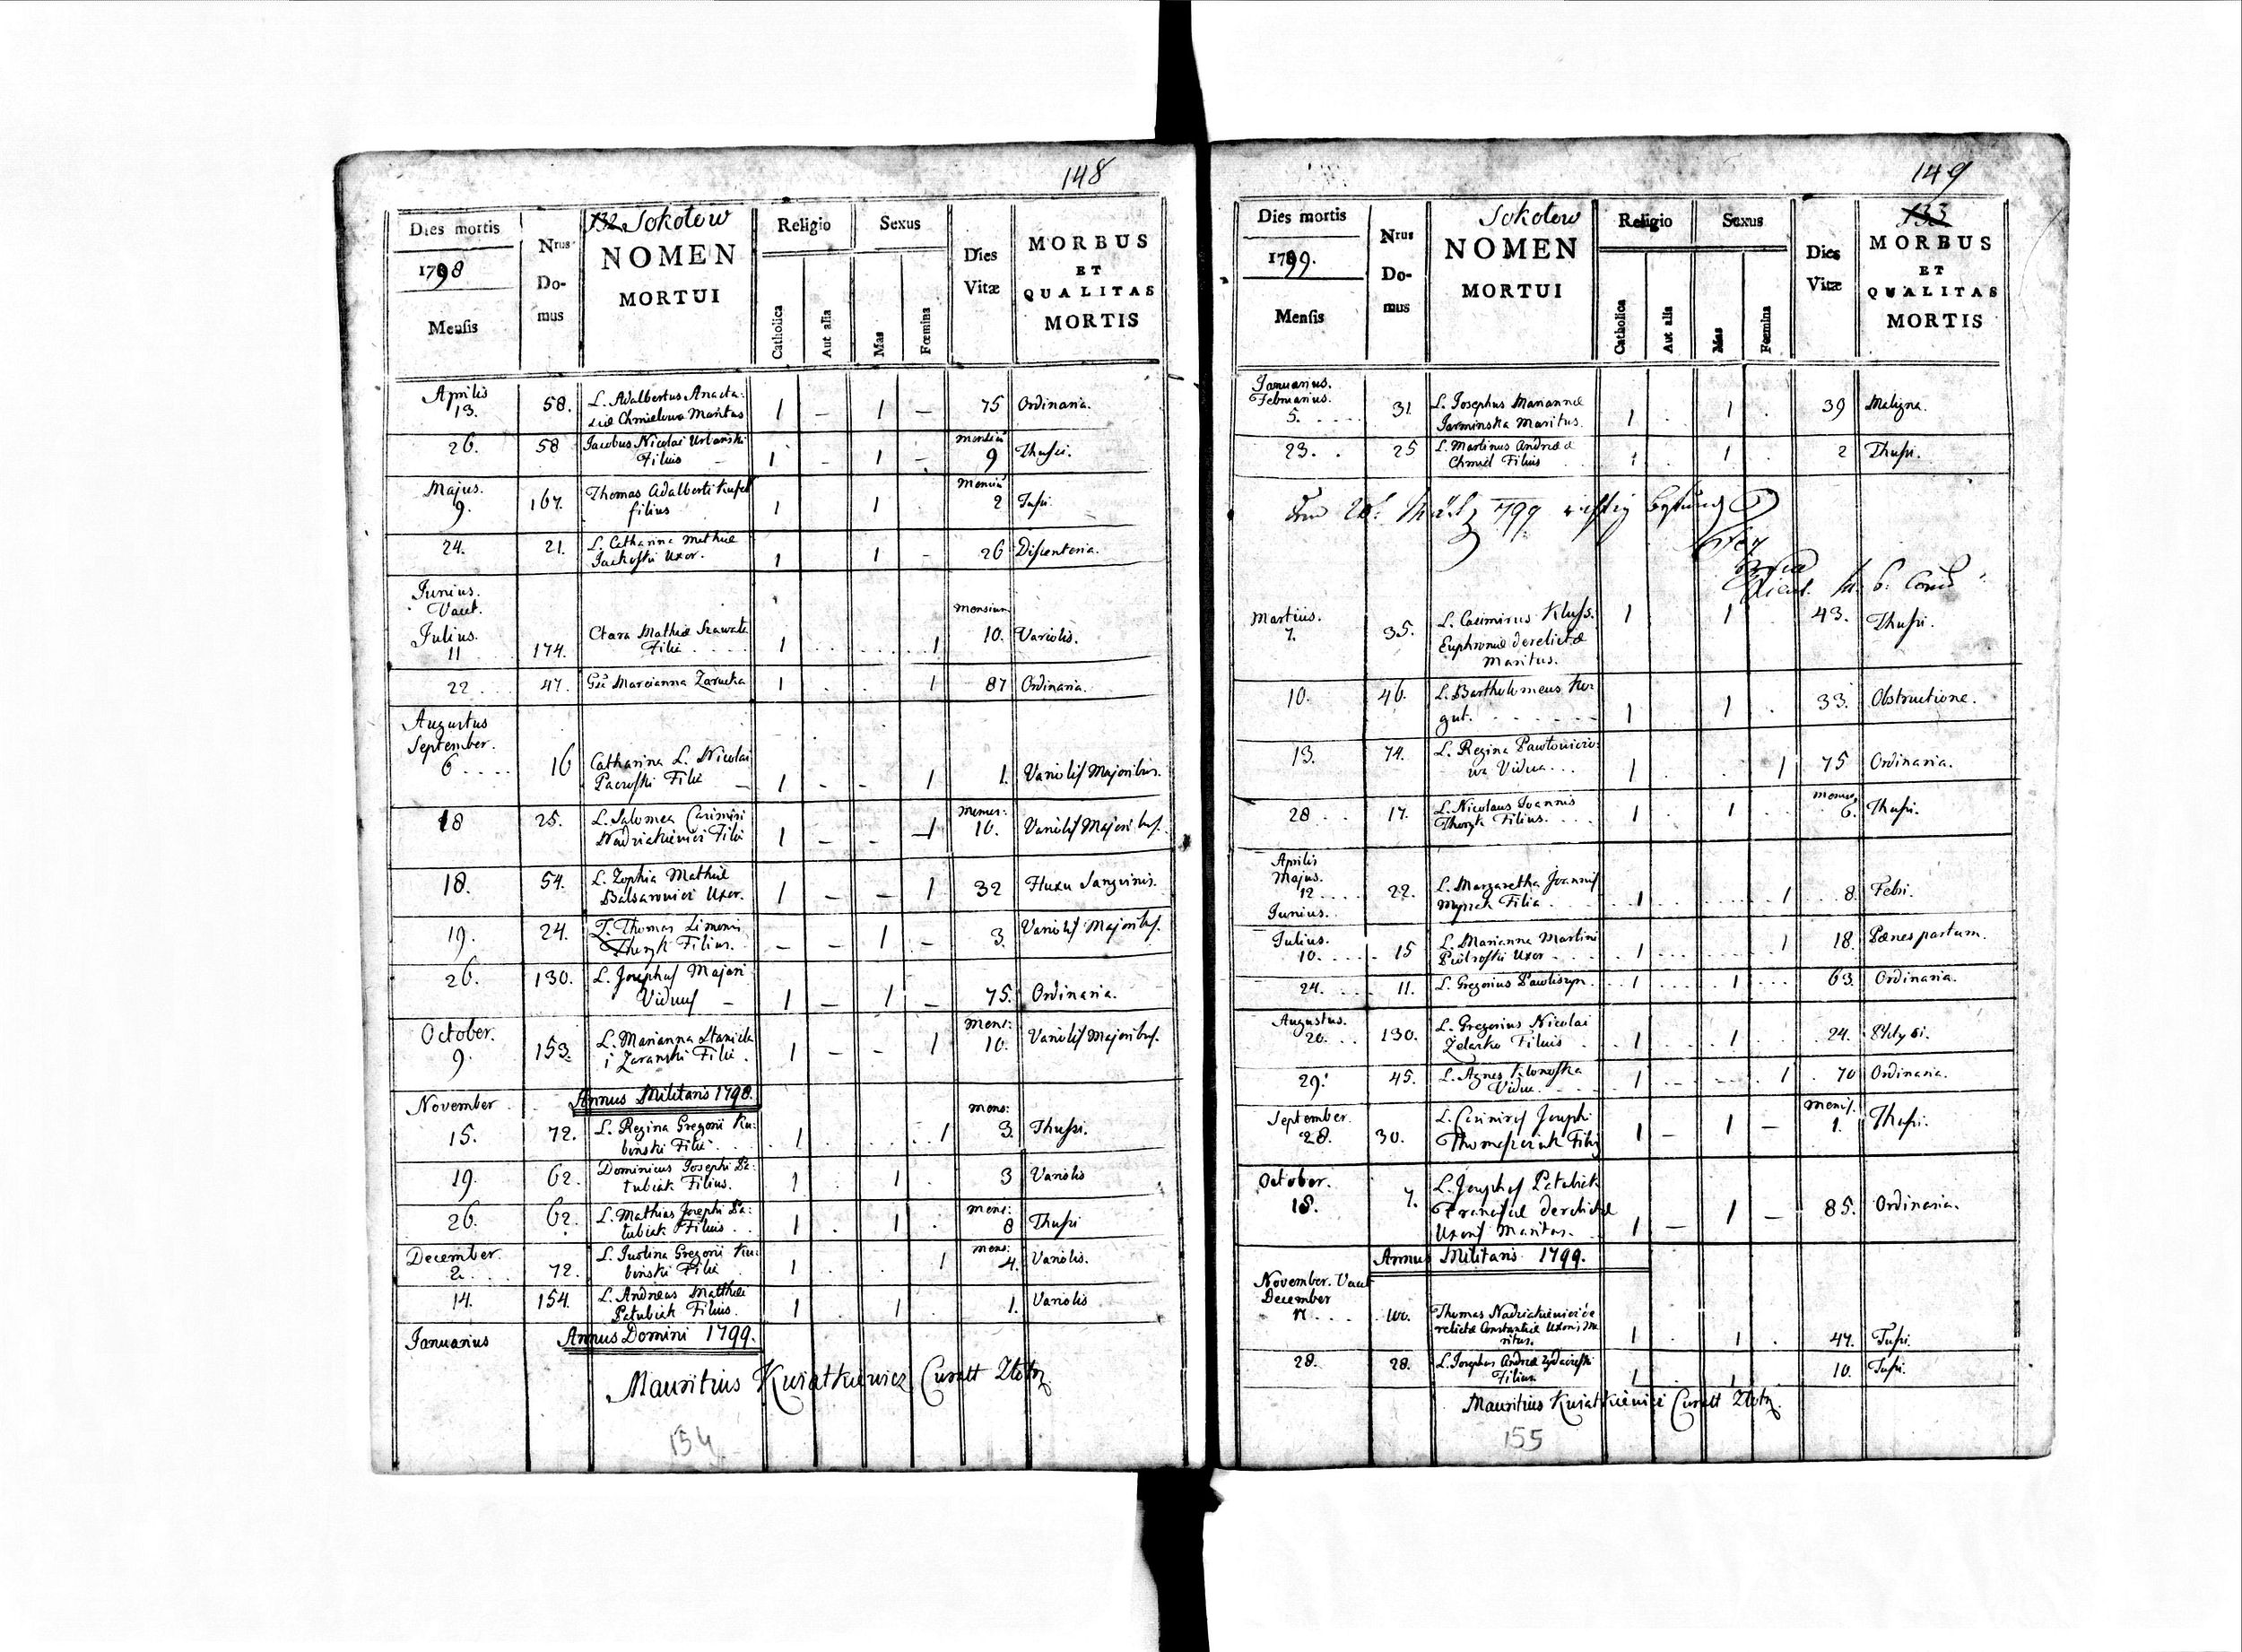 148
Dies mortis
1798
Mensis
Nrus
Do-
mus
132 Sokołow
NOMEN
MORTUI
Religio
Catholica
Aut alia
Sexus
Mas
Fœmina
Dies
Vitæ
MORBUS
ET
QUALITAS
MORTIS
Aprilis
13. 58. L. Adalbertus Anasta-
Chmielowa Maritus 1 – 1 – 75 Ordinaria.
26. 58 Jacobus Nicolai Urbański
Filius – 1 – 1 – 9 Thussi.
Majus.
9. 167. Thomas Adalberti
filius 1 1 2 Tussi.
24. 21. L. Catharina Mathiæ
Uxor. 1 1 – 26 Disenteria.
Junius.
Vacat.
Julius. Mensium
11 174. Clara Mathiæ
Filia 1 1 10. Variolis.
22 47. Marcianna Zarucka 1 1 87 Ordinaria.
Augustus
September.
6 16 Catharina L. Nicolai
Filia 1 – – 1 1. Variolis Majoribus.
18 25. L. Salomea Casimiri
Nadziakiewicz Filia 1 – – 1 Variolis Majoribus.
18. 54. L. Zophia Mathiæ
Balsarowicz Uxor. 1 – – 1 32 Fluxu Sanguinis.
19. 24. Thomas Simonis
Filius. – – 1 – 3. Variolis Majoribus.
26. 130. L. Josephus
Viduus – 1 – 1 – 75. Ordinaria.
October. Mens:
9. 153. L. Marianna
Zaranski Filia 1 – – 1 10. Variolis Majoribus.
November Annus Militaris 1798.
Mens:
15. 72. L. Regina Gregorii Ku-
binski Filia 1 1 3. Thussi.
19. 62. Dominicus Josephi Pa-
tubiak Filius. 1 1 3 Variolis
26. 62. L. Mathias Josephi Pa-
tubiak Filius 1 1 mens: 8 Thussi
December.
2. 72. L. Justina Gregorii Ku-
binski Filia 1 1 mens: 4. Variolis.
14. 154. L. Andreas Matthiæ
Patubiak Filius. 1 1 1. Variolis
Januarius Annus Domini 1799.
Mauritius Kwiatkiewicz Curatt
154
149
Dies mortis
1799.
Mensis
Nrus
Do-
mus
Sokołow
NOMEN
MORTUI
Religio
Catholica
Aut alia
Sexus
Mas
Fœmina
Dies
Vitæ
133
MORBUS
ET
QUALITAS
MORTIS
Januarius.
Februarius.
5. 31. L. Josephus Mariannæ
Jarminska Maritus. 1 1 39 Maligna.
23. 25 L. Martinus Andreæ
Chmiel Filius 1 1 2 Thussi.
März 799 richtig
Martius.
7. 35. L. Casimirus
Euphroniæ derelictæ
Maritus. 1 1 43. Thussi.
10. 46. L. Bartholomeus Kor
gut. 1 1 33. Obstructione.
13. 74. L. Regina Pawłowiczo-
wa Vidua 1 1 75 Ordinaria.
28 17. L. Nicolaus Joannis
Filius. 1 1 6. Thussi.
Aprilis
Majus.
12 22. L. Margaretha Joannis
Filia 1 1 8. Febri.
Junius.
Julius.
10. 15 L. Marianna Martini
Piotrofski Uxor 1 1 18. Pœnes partum.
24. 11. L. Gregorius Pawliszyn 1 1 63. Ordinaria.
Augustus.
20. 130. L. Gregorius Nicolai
Filius 1 1 24.
29. 45. L. Agnes
Vidua 1 1 70 Ordinaria.
September. mens.
28. 30. L. Casimirus Josephi
1 – 1 – 1. Thussi.
October.
18. 7. L. Josephus Patubiak
Franciscæ derelictæ
Uxoris Maritus. 1 – 1 – 85. Ordinaria.
Annus Militaris 1799.
November. Vacat
December
100. Thomas Nadziakiewicz de
relictæ Constantiæ Uxoris Ma
ritus. 1 1 47. Tussi.
28. 28. L. Josephus Andreæ
Filius 1 1 10. Tussi.
Mauritius Kwiatkiewicz Curatt
155